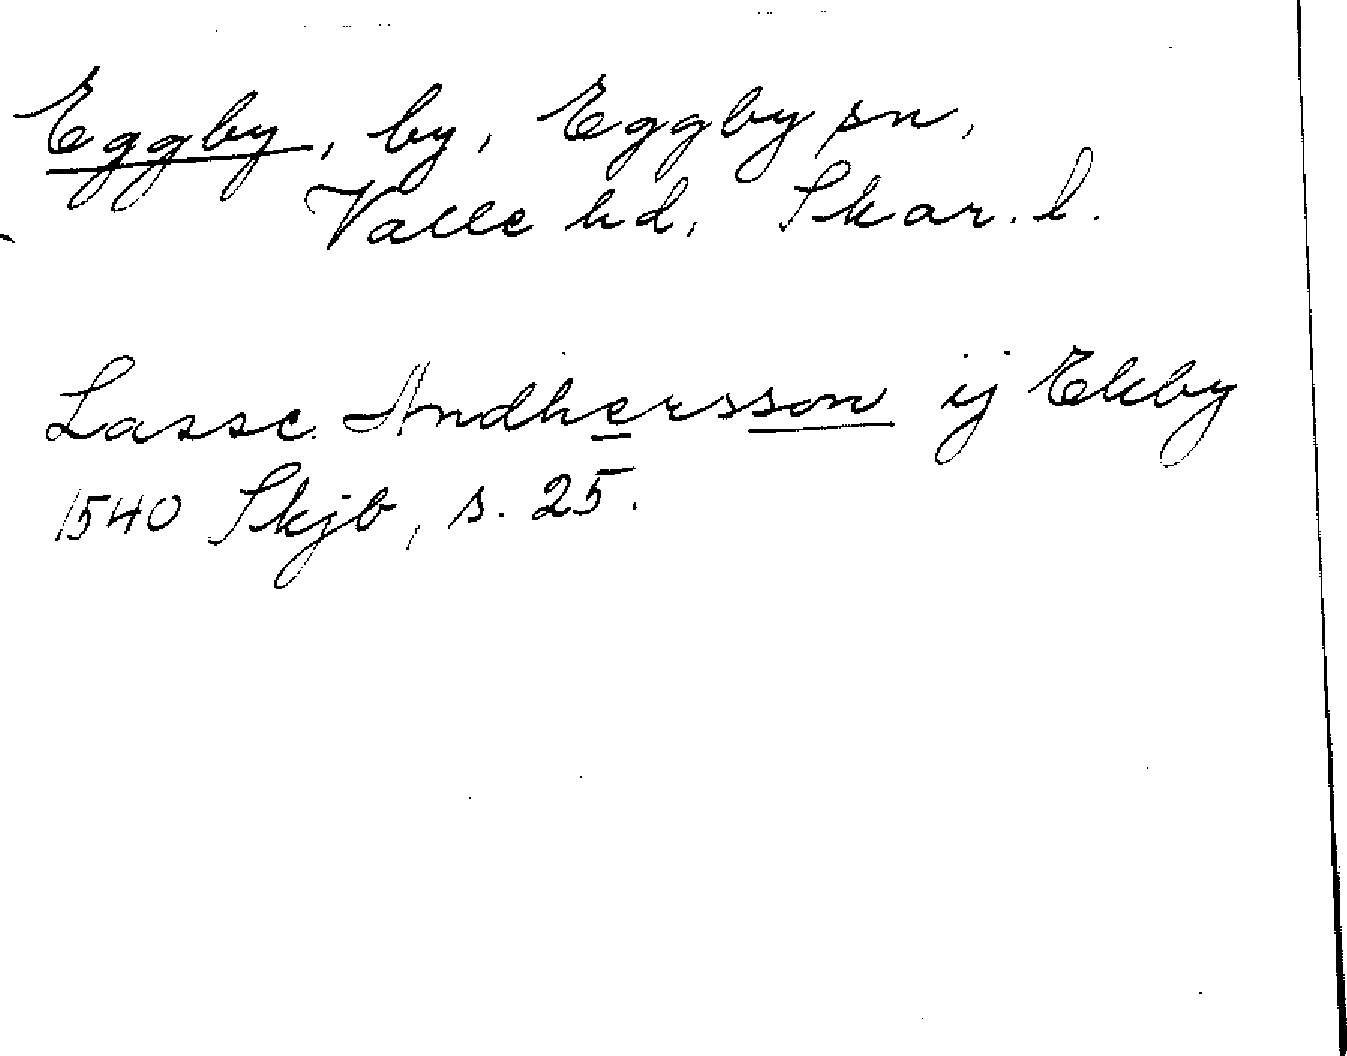 Eggby, by, Eggby sn,
Valle hd, Skar. l.
Lasse Andhersson ij Ekby
1540 Skjb, s. 25.